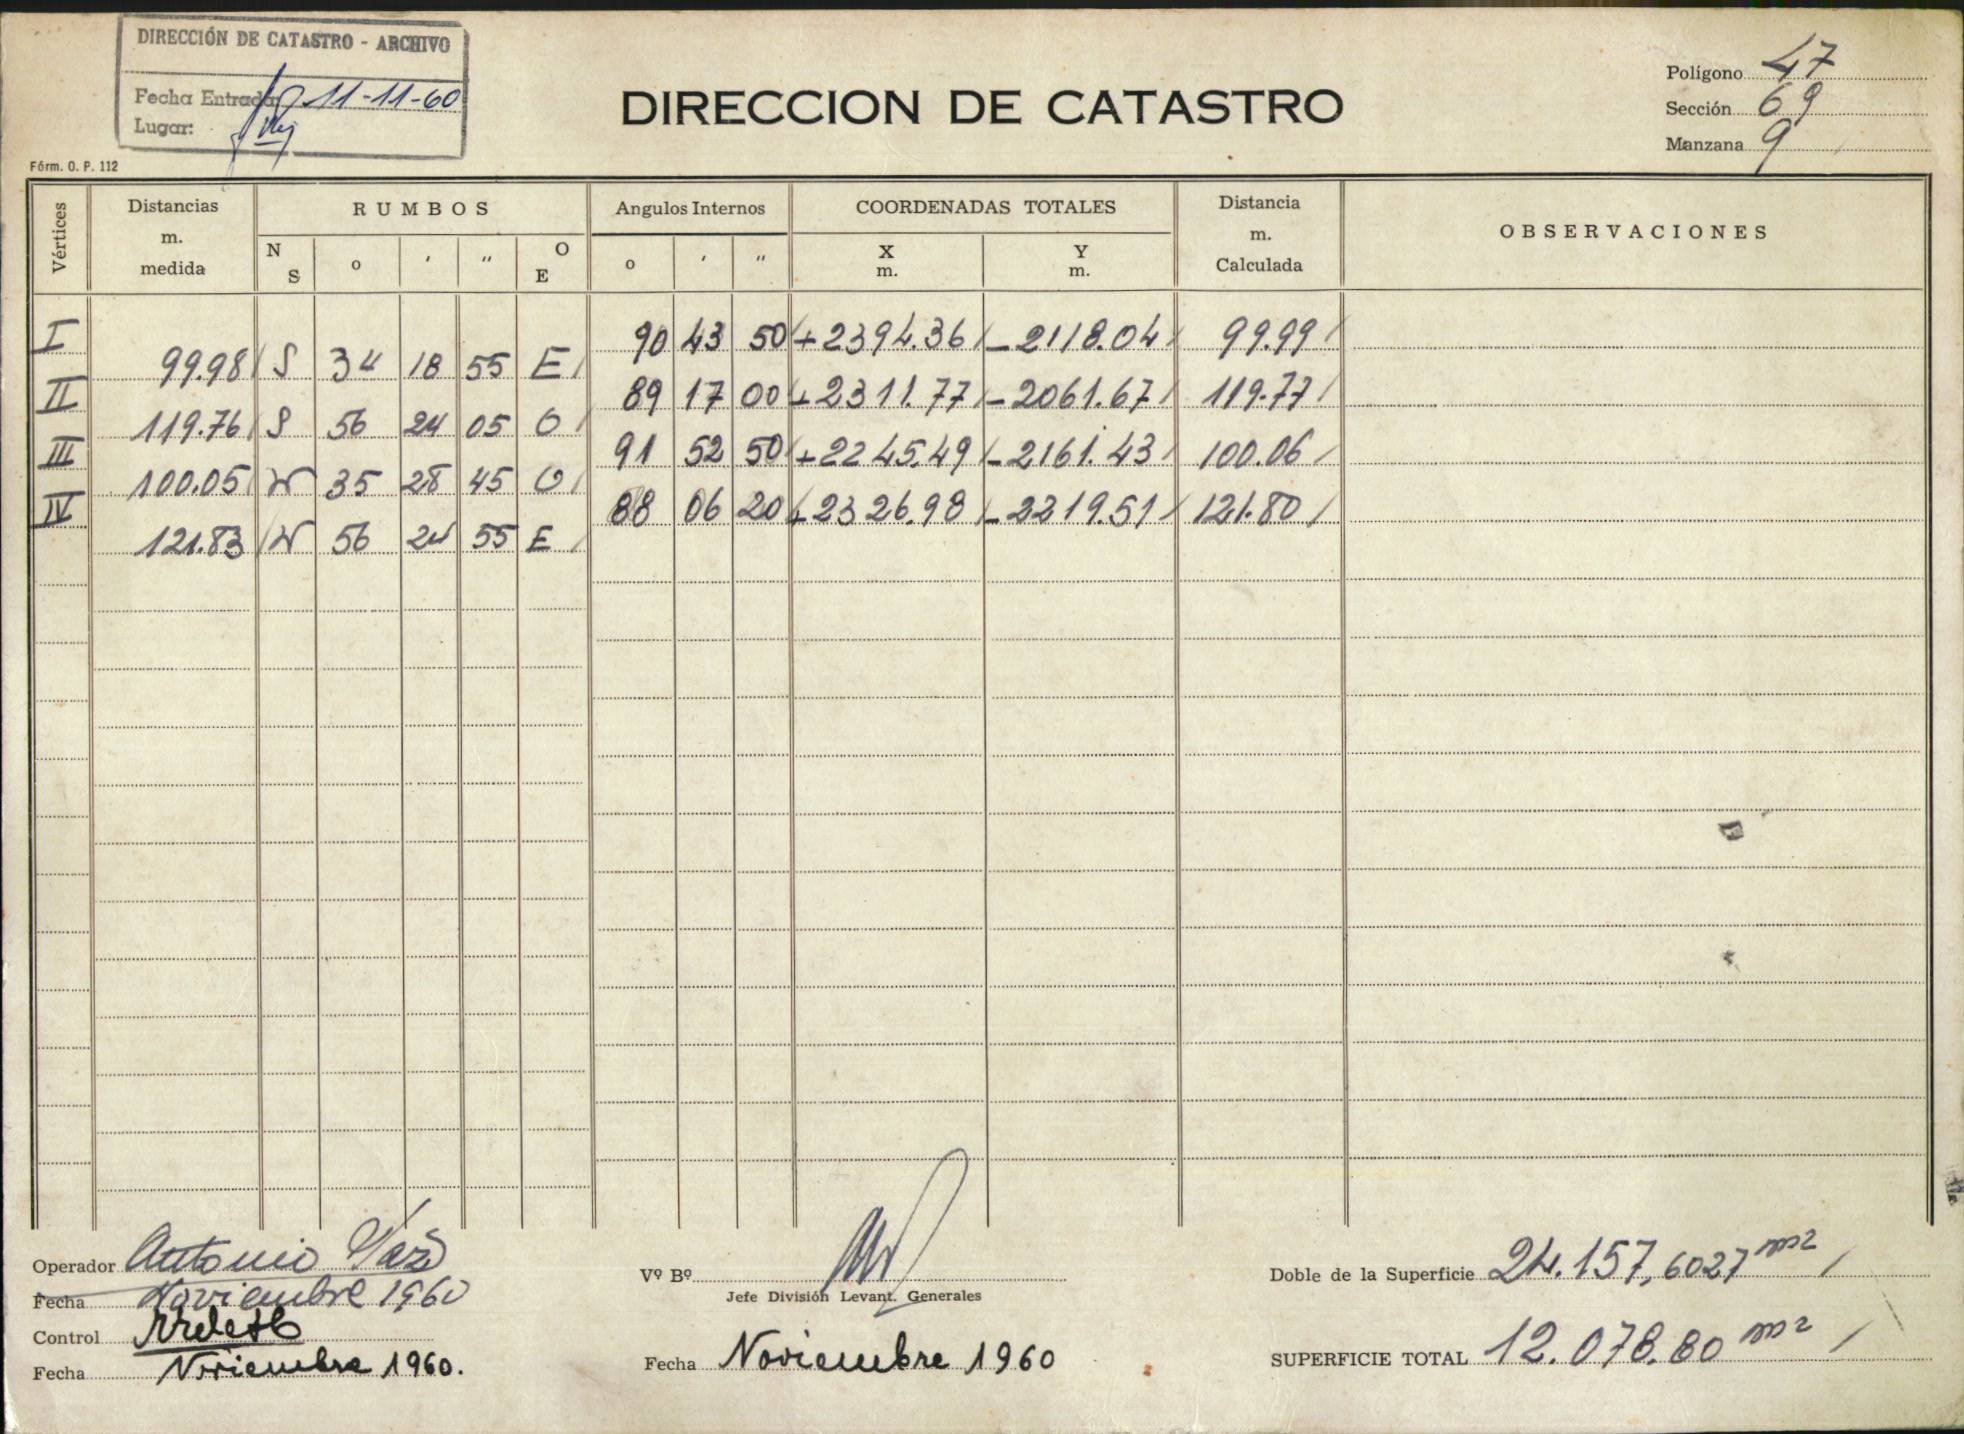 DIRECCIÓN DE CATASTRO - ARCHIVO
Fecha Entrada 11-11-60
Lugar:
Fórm. O. P. 112
DIRECCION DE CATASTRO
Polígono 47
Sección 69
Manzana 9
Vértices
Distancias m. medida
RUMBOS
N S o ' " O E
Angulos Internos
o ' "
COORDENADAS TOTALES
X m.
Y m.
Distancia m. Calculada
OBSERVACIONES
I 90 43 50 +2394.36 -2118.04 99.99
99.98 S 34 18 55 E
II 89 17 00 +2311.77 -2061.67 119.77
119.76 S 56 24 05 O
III 91 52 50 +2245.49 -2161.43 100.06
100.05 N 35 28 45 O
IV 88 06 20 +2326.98 -2219.51 121.80
121.83 N 56 24 55 E
Operador Antonio
Fecha Noviembre 1960
Control
Fecha Noviembre 1960.
Vº Bº
Jefe División Levant. Generales
Fecha Noviembre 1960
Doble de la Superficie 24.157,6027 m2
SUPERFICIE TOTAL 12.078.80 m2